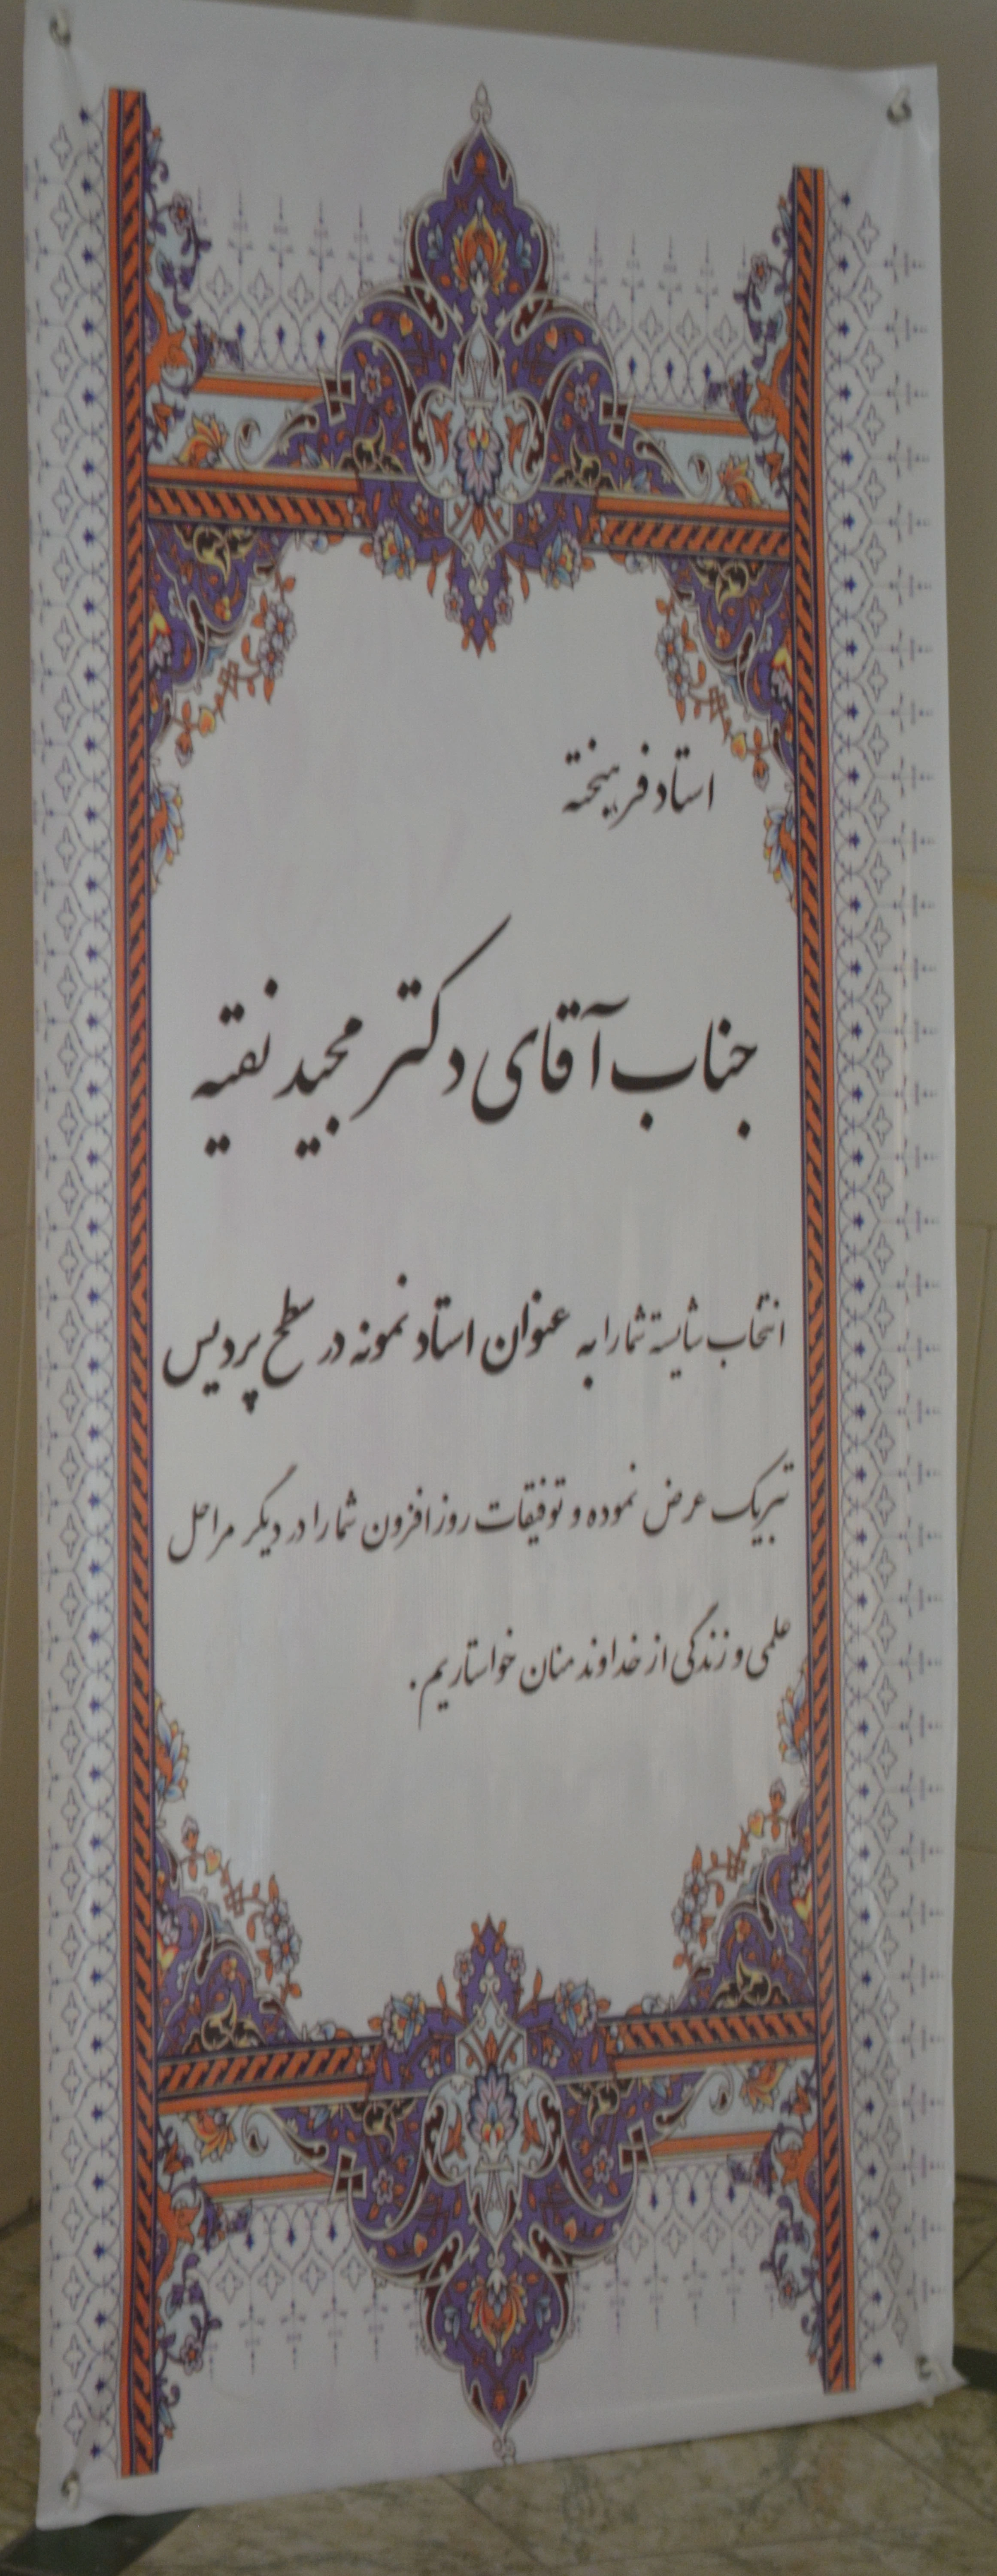 استاد فرهیخته
جناب آقای دکتر مجید نقیه
انتخاب شایسته شما را به عنوان استاد نمونه در سطح پردیس
تبریک عرض نموده و توفیقات روزافزون شما را در دیگر مراحل
علمی و زندگی از خداوند منان خواستاریم.